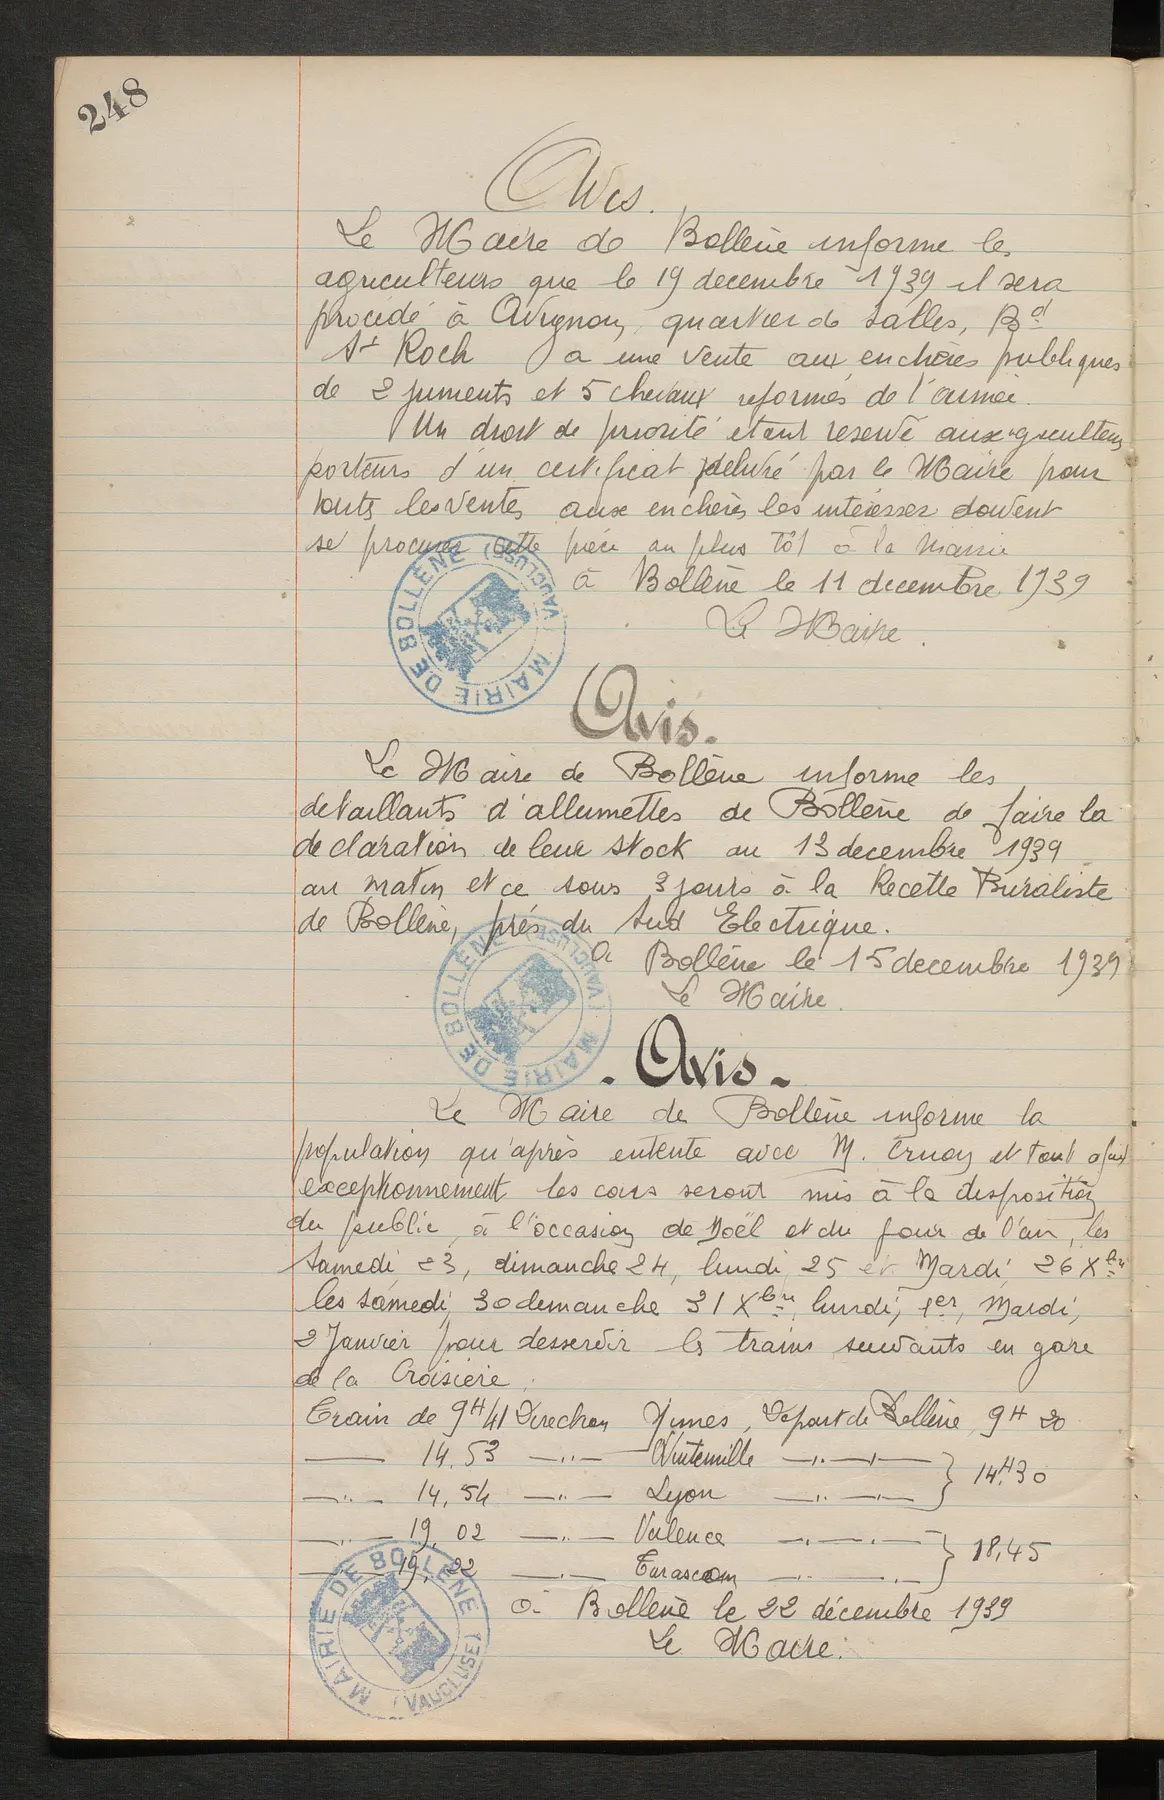 248
Avis.
Le Maire de Bollène informe les
agriculteurs que le 19 decembre 1939 il sera
procédé à Avignon, quartier de Salles, Bd
St Roch a une vente aux enchères publiques
de 2 juments et 5 chevaux reformés de l'armée.
Un droit de priorité étant reservé aux agriculteurs
porteurs d'un certificat délivré par le Maire pour
touts les ventes aux enchères les intéressés doivent
se procurer cette pièce au plus tôt à la Mairie
à Bollène le 11 decembre 1939
Le Maire.
MAIRIE DE BOLLÈNE (VAUCLUSE)
Avis.
Le Maire de Bollène informe les
detaillants d'allumettes de Bollène de faire la
declaration de leur stock au 13 decembre 1939
au matin et ce sous 3 jours à la Recette Buraliste
de Bollène, près du Sud Electrique.
A Bollène le 15 decembre 1939
Le Maire.
MAIRIE DE BOLLÈNE (VAUCLUSE)
- Avis -
Le Maire de Bollène informe la
population qu'après entente avec M. et tout à fait
exceptionnement les cars seront mis à la disposition
du public, à l'occasion de Noël et du jour de l'an, les
Samedi 23, dimanche 24, lundi 25 et Mardi 26 Xbre
les samedi, 30 demanche 31 Xbre, lundi, 1er, Mardi,
2 Janvier pour desservir les trains suivants en gare
de la Croisière.
Train de 9H41 Direction Nimes, Départ de Bollène 9H 20
— 14.53 —〃— —〃— 14H30
—〃— 14,54 —〃— Lyon —〃—
—〃— 19,02 —〃— Valence —〃— 18,45
— 19,22 —〃— Tarascon —〃—
à Bollène le 22 décembre 1939
Le Maire.
MAIRIE DE BOLLÈNE (VAUCLUSE)